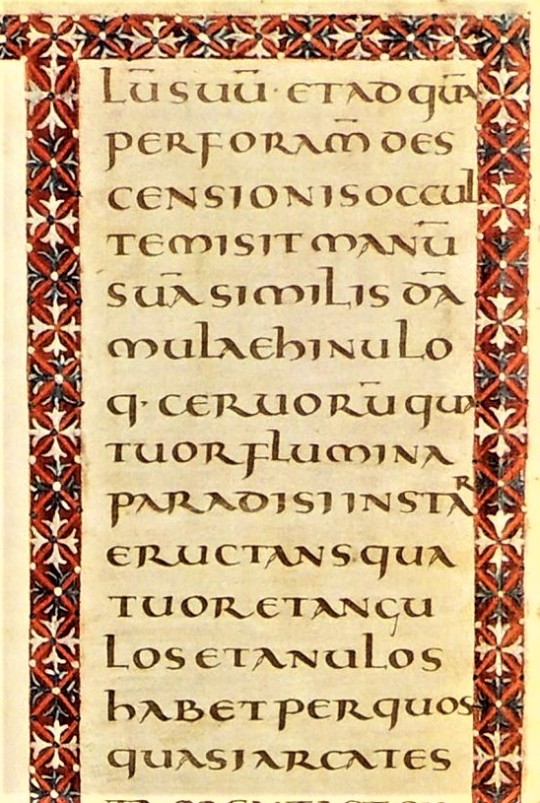 LŪ SUŪ· ET AD QUĀ
PERFORAM̄ DES
CENSIONIS OCCUL
TE MISIT MANŪ
SUĀ SIMILIS DĀ
MULAE HINULO
Q· CERUORŪ QUA
TUOR FLUMINA
PARADISI INSTAR
ERUCTANS QUA
TUOR ET ANGU
LOS ET ANULOS
HABET PER QUOS
QUASI ARCA TES